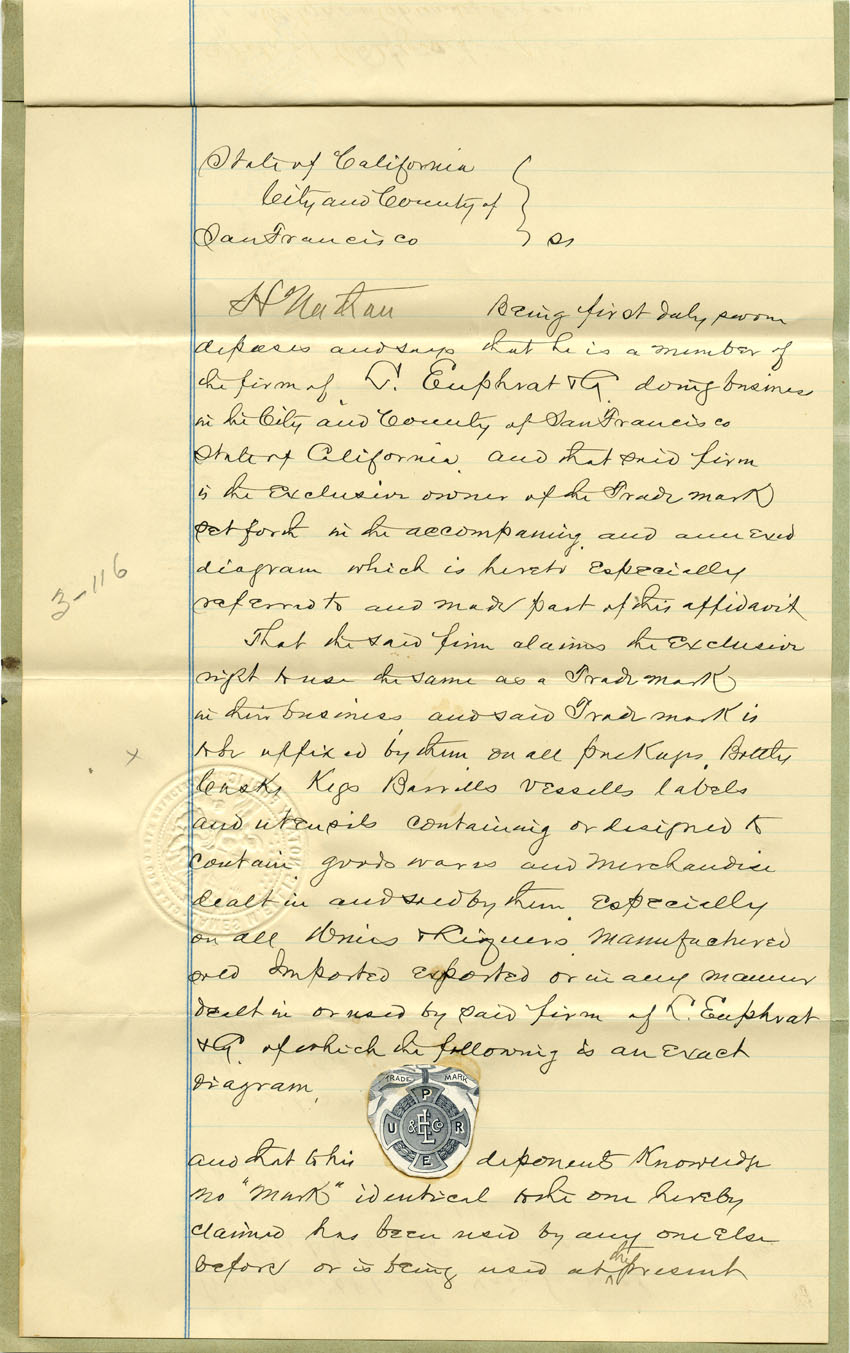 State of California
City and County of
San Francisco } ss
H Nathan Being first duly sworn
deposes and says that he is a member of
the firm of L. Euphrat & Co. doing business
in the City and County of San Francisco
State of California and that said firm
is the Exclusive owner of the Trade mark
set forth in the accompaning and annexed
diagram which is hereto Especially
referred to and made part of this affidavit
That the said firm claims the Exclusive
right to use the same as a Trade mark
in their business and said Trade mark is
to be affixed by them on all packages, Bottles
Casks Kegs Barrills Vesselles labels
and utensils containing or designed to
contain goods wares and merchandise
dealt in and sold by them Especially
on all Wines & Liquers manufactured
sold Imported exported or in any manner
dealt in or used by said firm of L. Euphrat
& Co. of which the following is an Exact
diagram,
TRADE MARK
P
U & L E Co R
E
and that to his deponents Knowledge
no "Mark" identical to the one hereby
claimed has been used by any one Else
before or is being used at the present
3-116
x